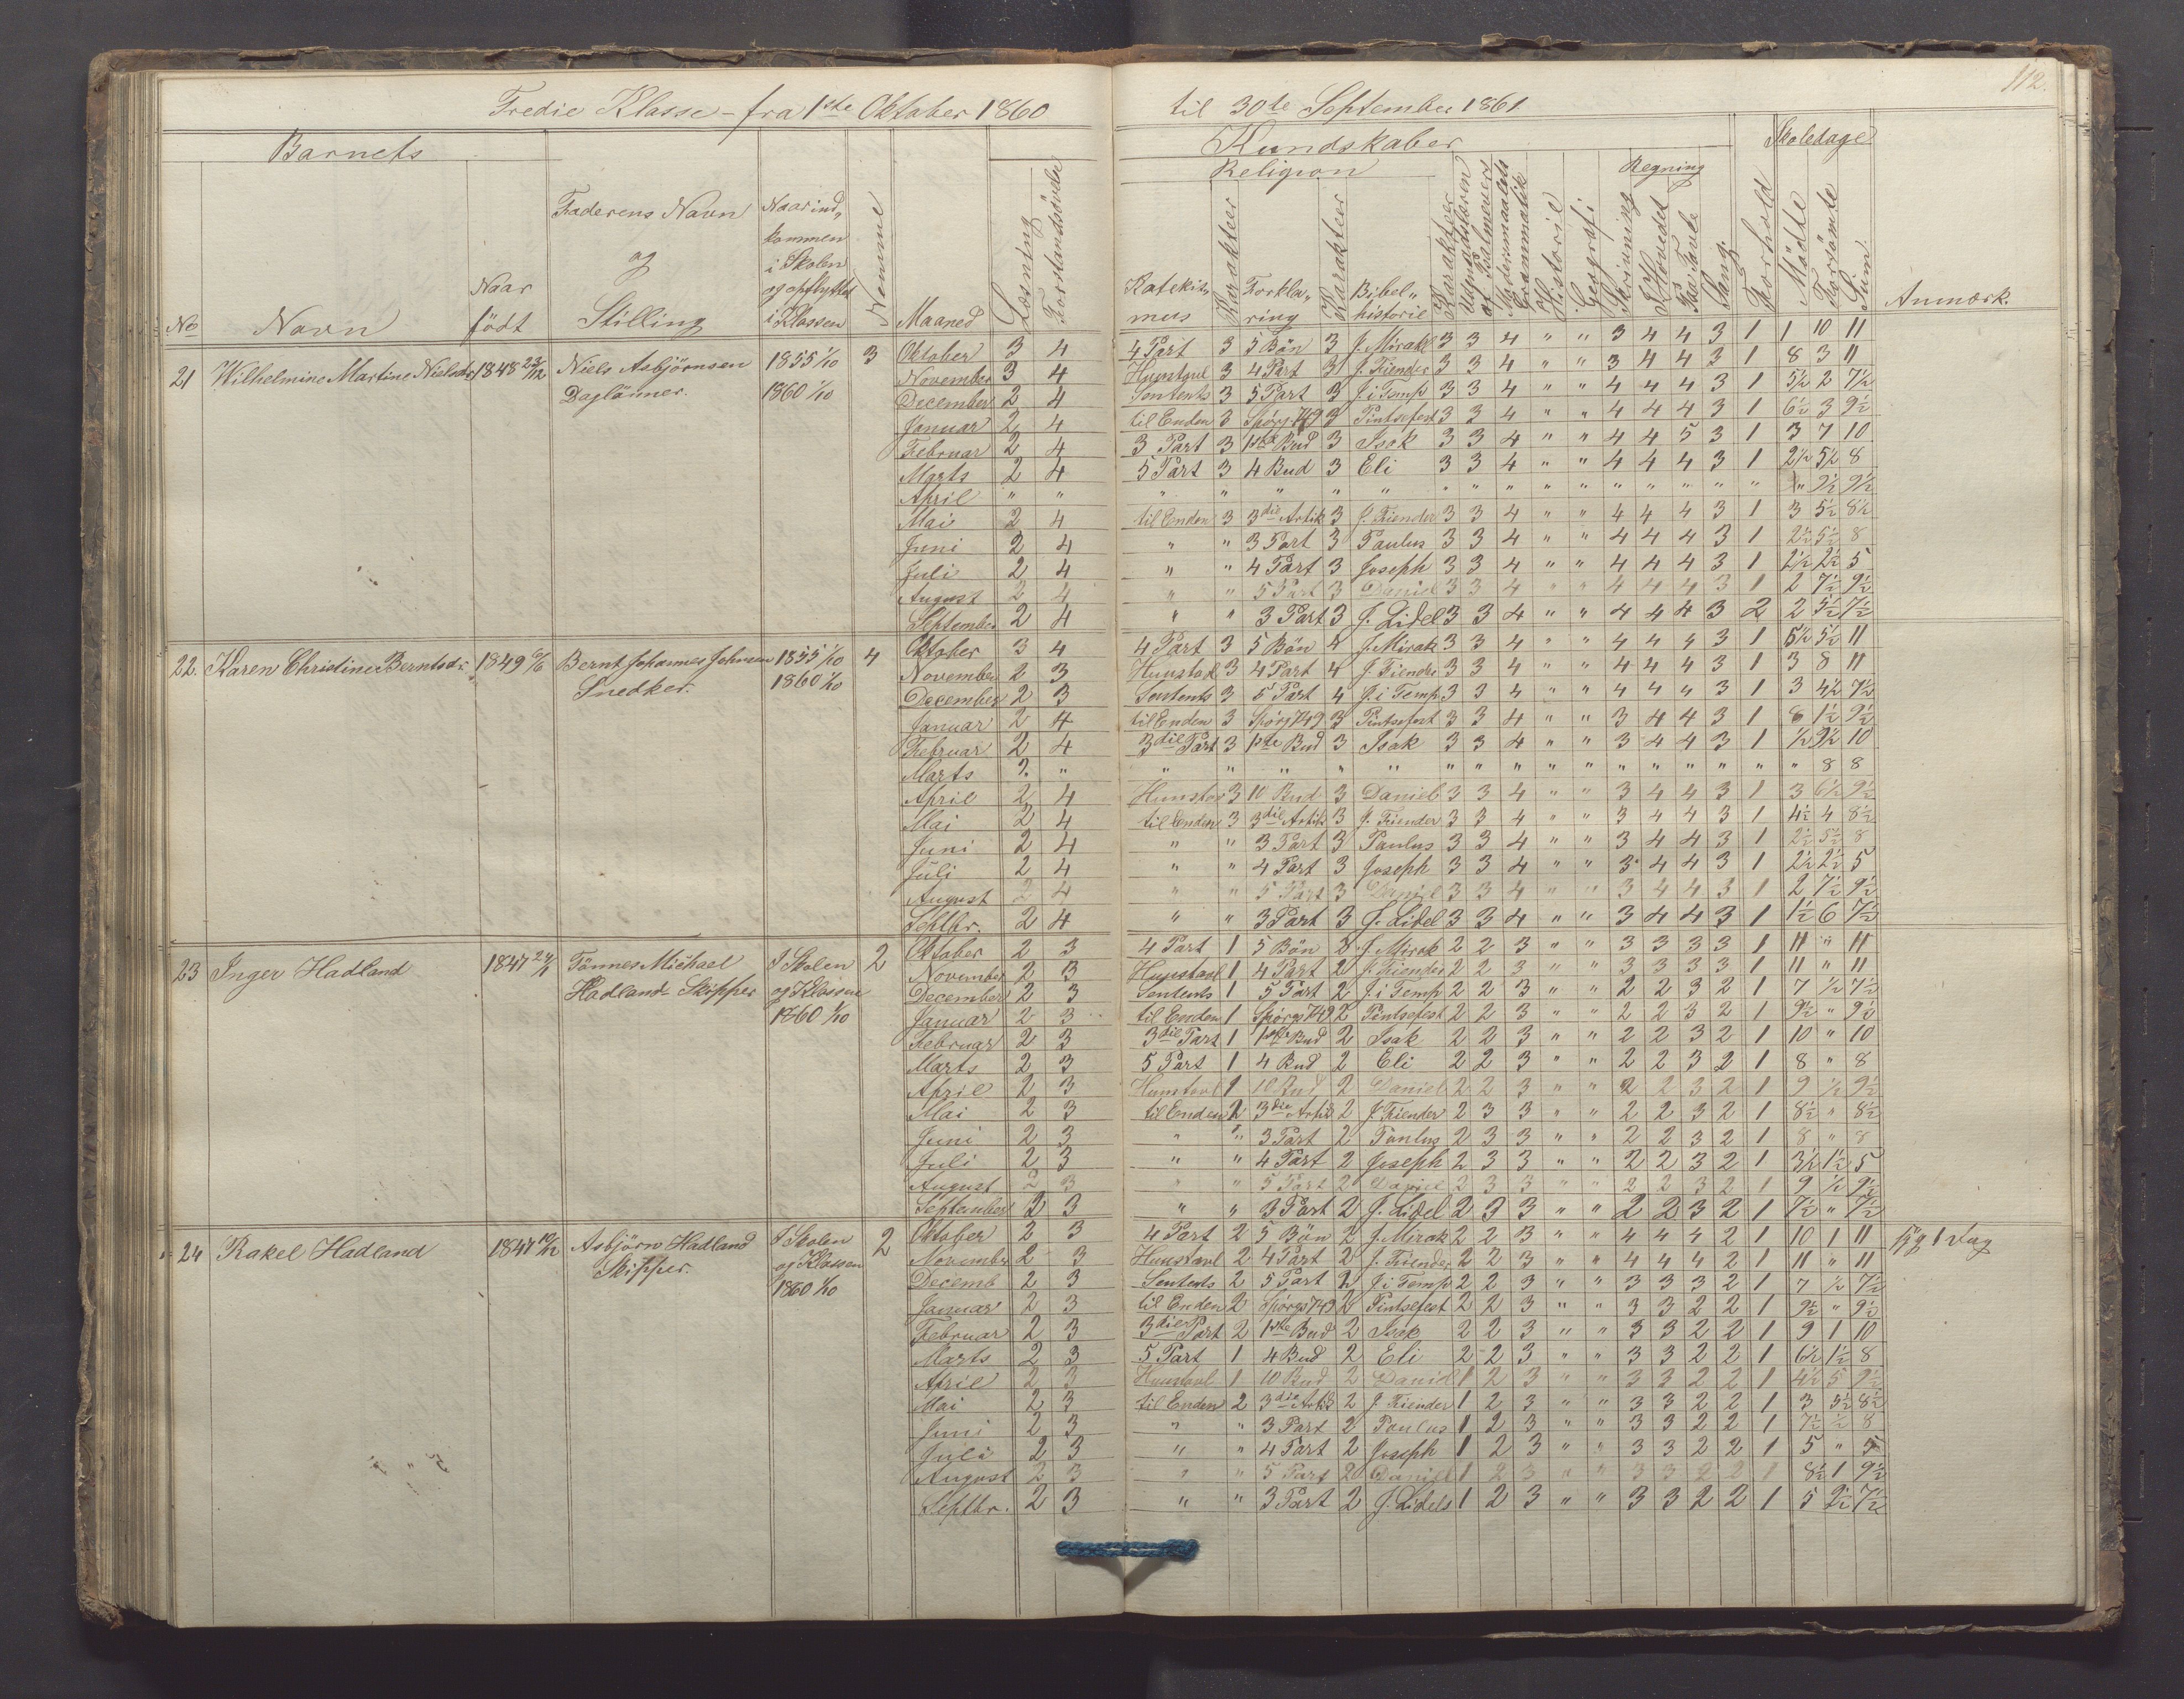 112.
Tredie Klasse - fra 1ste Oktober 1860 til 30te September 1861
Barnets
Kundskaber
Skoledage
Religion
Regning
No
Navn
Naar født
Faderens Navn og Stilling
Naar ind„ kommen i Skolen og opflyttet i Klassen
Nemme
Maaned
Læsning
Forstandsøvelse
Katekis„ mus
Karakteer
Forkla„ ring
Karakteer
Bibel„ historie
Karakteer
Udenadslæren af Psalmevers
Modersmaalets Grammatik
Historie
Geografi
Skrivning
I Hovedet
Paa Tavle
Sang
Forhold
Mødte
Forsømte
Sum
Anmærk.
21 Wilhelmine Martine Nielsdr 1848 23/12 Niels Asbjørnsen Daglønner. 1855 1/10 1860 1/10 3
Oktober 3 4 4 Part 3 5 Bøn 3 J. Mirakl 3 3 4 " " 3 4 4 3 1 1 10 11
November 3 4 Hunstavl 3 4 Part 3 J. Fiender 3 3 4 " " 3 4 4 3 1 8 3 11
December 2 4 Sentents 3 5 Part 3 J. i Temp 3 3 4 " " 4 4 4 3 1 5½ 2 7½
Januar 2 4 til Enden 3 Spørg 749 3 Pintsefest 3 3 4 " " 4 4 4 3 1 6½ 3 9½
Februar 2 4 3 Part 3 1ste Bud 3 Isak 3 3 4 " " 4 4 5 3 1 3 7 10
Marts 2 4 5 Part 3 4 Bud 3 Eli 3 3 4 " " 4 4 4 3 1 2½ 5½ 8
April " " " " " " " " " " " " " " " " " " " 9½ 9½
Mai 2 4 til Enden 3 3die Artik 3 J. Fiender 3 3 4 " " 4 4 4 3 1 3 5½ 8½
Juni 2 4 " " 3 Part 3 Paulus 3 3 4 " " 4 4 4 3 1 2½ 5½ 8
Juli 2 4 " " 4 Part 3 Joseph 3 3 4 " " 4 4 4 3 1 2½ 2½ 5
August 2 4 " " 5 Part 3 Daniel 3 3 4 " " 4 4 4 3 1 2 7½ 9½
September 2 4 " " 3 Part 3 J. Lidel 3 3 4 " " 4 4 4 3 2 2 5½ 7½
22. Karen Christine Berntsdr 1849 6/6 Bernt Johannes Johnsen Snedker. 1855 1/10 1860 1/10 4
Oktober 3 4 4 Part 3 5 Bøn 4 J. Mirak 3 3 4 " " 4 4 4 3 1 5½ 5½ 11
November 2 3 Hunstak 3 4 Part 4 J. Fiender 3 3 4 " " 4 4 4 3 1 3 8 11
December 2 3 Sentents 3 5 Part 4 J. i Temp 3 3 4 " " 4 4 4 3 1 3 4½ 7½
Januar 2 4 til Enden 3 Spørg 749 3 Pintsefest 3 3 4 " " 3 4 4 3 1 8 1½ 9½
Februar 2 4 3die Part 3 1ste Bud 3 Isak 3 3 4 " " 3 4 4 3 1 ½ 9½ 10
Marts 2. " " " " " " " " " " " " " " " " " 8 8
April 2 4 Hunstav 3 10 Bud 3 Daniel 3 3 4 " " 3 4 4 3 1 3 6½ 9½
Mai 2 4 til Enden 3 3die Artik 3 J. Fiender 3 3 4 " " 3 4 4 3 1 4½ 4 8½
Juni 2 4 " " 3 Part 3 Paulus 3 3 4 " " 3 4 4 3 1 2½ 5½ 8
Juli 2 4 " " 4 Part 3 Joseph 3 3 4 " " 3 4 4 3 1 2½ 2½ 5
August 2 4 " " 5 Part 3 Daniel 3 3 4 " " 3 4 4 3 1 2 7½ 9½
Septbr. 2 4 " " 3 Part 3 J. Lidel 3 3 4 " " 3 4 4 3 1 1½ 6 7½
23 Inger Hadland 1847 24/1 Tönnes Michael Hadland- Skipper I Skolen og Klassen 1860 1/10 2
Oktober 2 3 4 Part 1 5 Bøn 2 J. Mirak 2 2 3 " " 3 3 3 3 1 11 " 11
November 2 3 Hunstavl 1 4 Part 2 J. Fiender 2 2 3 " " 3 3 3 3 1 11 " 11
December 2 3 Sentents 1 5 Part 2 J. i Temp 2 2 3 " " 2 2 3 2 1 7 ½ 7½
Januar 2 3 til Enden 1 Spörgs 749 2 Pintsefest 2 2 3 " " 2 2 3 2 1 9½ " 9½
Februar 2 3 3die Part 1 1ste Bud 2 Isak 2 2 3 " " 2 2 3 2 1 10 " 10
Marts 2 3 5 Part 1 4 Bud 2 Eli 2 2 3 " " 2 2 3 2 1 8 " 8
April 2 3 Hunstavl 1 10 Bud 2 Daniel 2 2 3 " " 2 2 3 2 1 9 ½ 9½
Mai 2 3 til Enden 2 3die Artik 2 J. Fiender 2 3 3 " " 2 2 3 2 1 8½ " 8½
Juni 2 3 " " 3 Part 2 Paulus 2 3 3 " " 2 2 3 2 1 8 " 8
Juli 2 3 " " 4 Part 2 Joseph 2 3 3 " " 2 2 3 2 1 3½ 1½ 5
August 2 3 " " 5 Part 2 Daniel 2 3 3 " " 2 2 3 2 1 9 ½ 9½
September 2 3 " " 3 Part 2 J. Lidel 2 3 3 " " 2 2 3 2 1 7½ " 7½
24 Rakel Hadland 1847 10/12 Asbjörn Hadland Skipper. I Skolen og Klassen 1860 1/10 2
Oktober 2 3 4 Part 2 5 Bön 2 J. Mirak 2 2 3 " " 4 4 4 2 1 10 1 11 syg 1 Dag
November 2 3 Hunstavl 2 4 Part 2 J. Fiender 2 2 3 " " 4 4 4 2 1 11 " 11
Decemb 2 3 Sentents 2 5 Part 2 J i Temp 2 2 3 " " 3 3 3 2 1 7 ½ 7½
Januar 2 3 til Enden 2 Spörgs 749 2 Pintsefest 2 2 3 " " 3 3 2 2 1 9½ " 9½
Februar 2 3 3die Part 2 1ste Bud 2 Isak 2 2 3 " " 3 3 2 2 1 9 1 10
Marts 2 3 5 Part 1 4 Bud 2 Eli 2 2 3 " " 3 3 2 2 1 6½ 1½ 8
April 2 3 Hunstavl 1 10 Bud 2 Daniel 1 2 3 " " 3 3 2 2 1 4½ 5 9½
Mai 2 3 til Enden 2 3die Artik 2 J. Fiender 1 2 3 " " 3 3 2 2 1 3 5½ 8½
Juni 2 3 " " 3 Part 2 Paulus 1 2 3 " " 3 3 2 2 1 7½ ½ 8
Juli 2 3 " " 4 Part 2 Joseph 1 2 3 " " 3 3 2 2 1 5 " 5
August 2 3 " " 5 Part 2 Daniel 1 2 3 " " 3 3 2 2 1 8½ 1 9½
Septbr. 2 3 " " 3 Part 2 J. Lidels 1 2 3 " " 3 3 2 2 1 5 2½ 7½